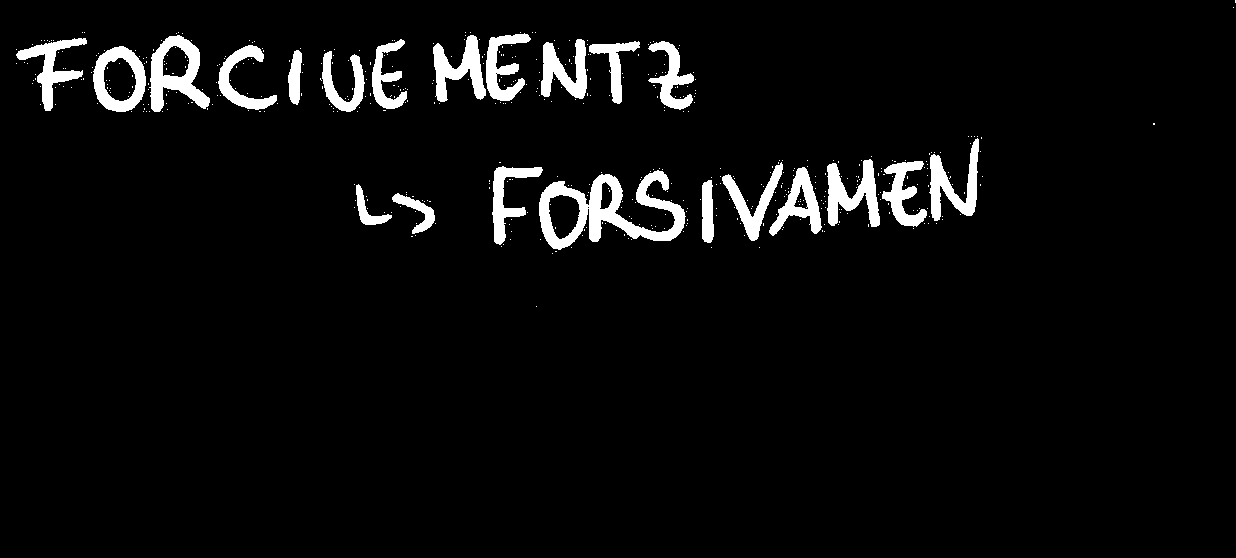 FORCIUEMENTZ
↳ FORSIVAMEN